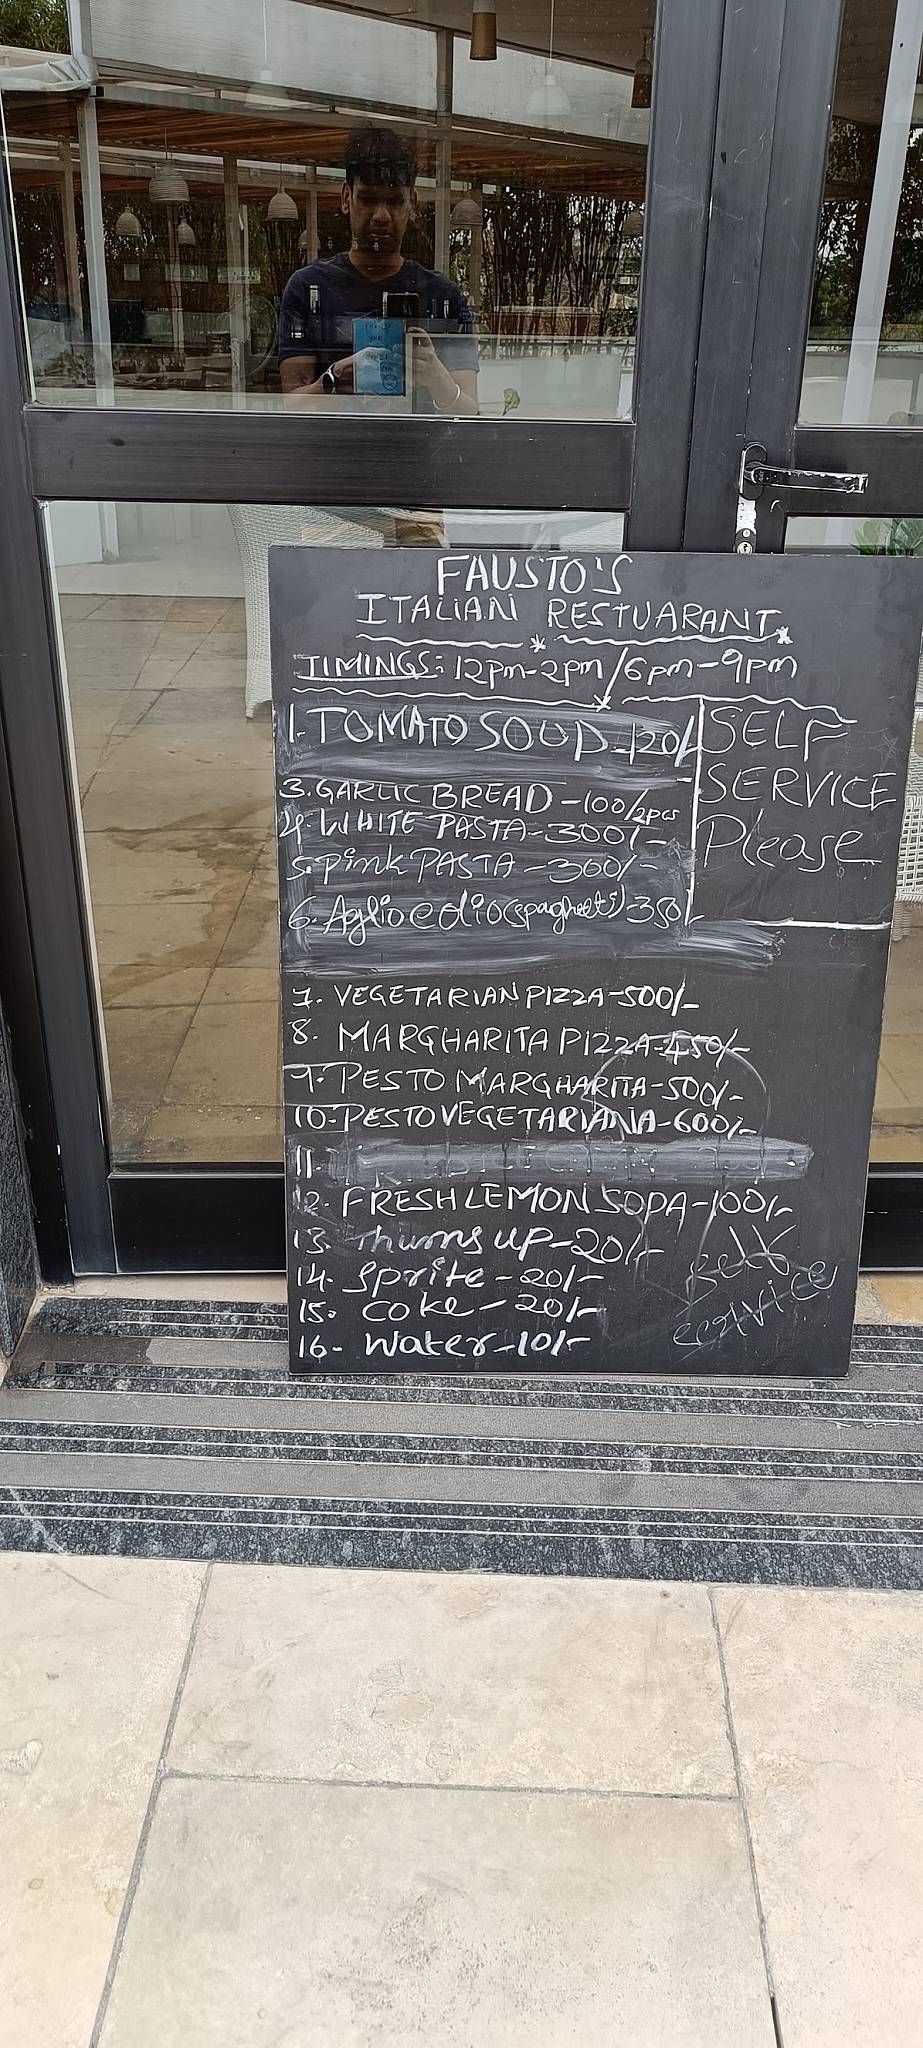 FAUSTO'S
ITALIAN RESTUARANT
TIMINGS: 12pm-2pm / 6pm-9pm
1. TOMATO SOUP-120/-
3. GARLIC BREAD-100/2pcs
4. WHITE PASTA-300/-
5. pink PASTA-360/-
6. Aglio e olio(spaghetti)-350/-
SELF
SERVICE
Please
7. VEGETARIAN PIZZA-500/-
8. MARGHARITA PIZZA-450/-
9. PESTO MARGHARITA-500/-
10. PESTO VEGETARIANA-600/-
11.
12. FRESH LEMON SODA-100/-
13. Thums UP-20/-
14. Sprite-20/-
15. coke-20/-
16- Water-10/-
self
service